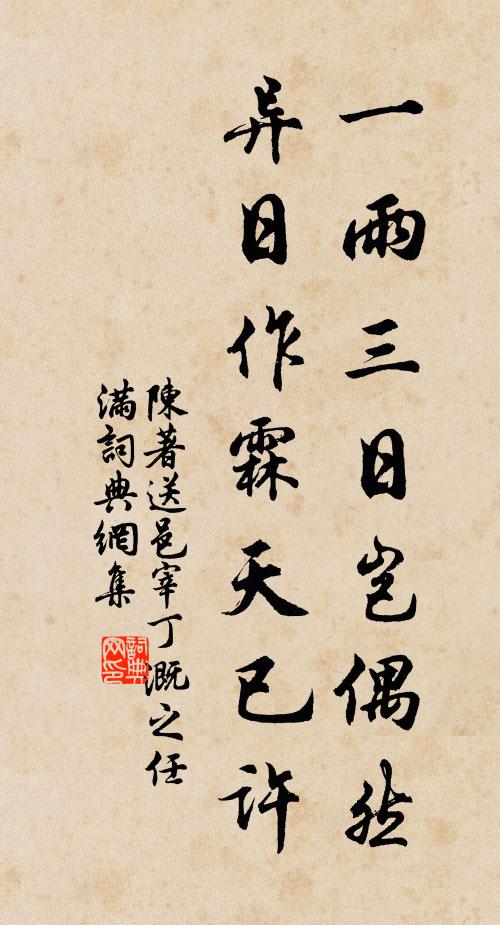 一雨三日岂偶然
异日作霖天已许
陳著送邑宰丁溉之任
滿詞典網集
詞典网印